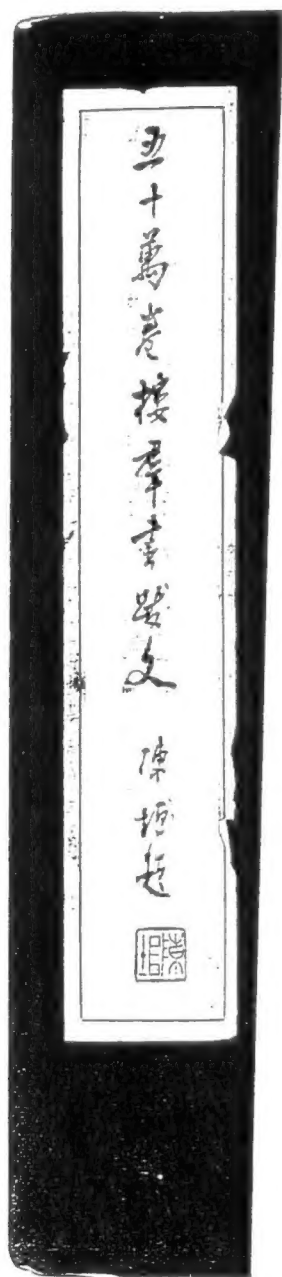 五十萬卷樓羣書跋文 陳垣題
陳垣